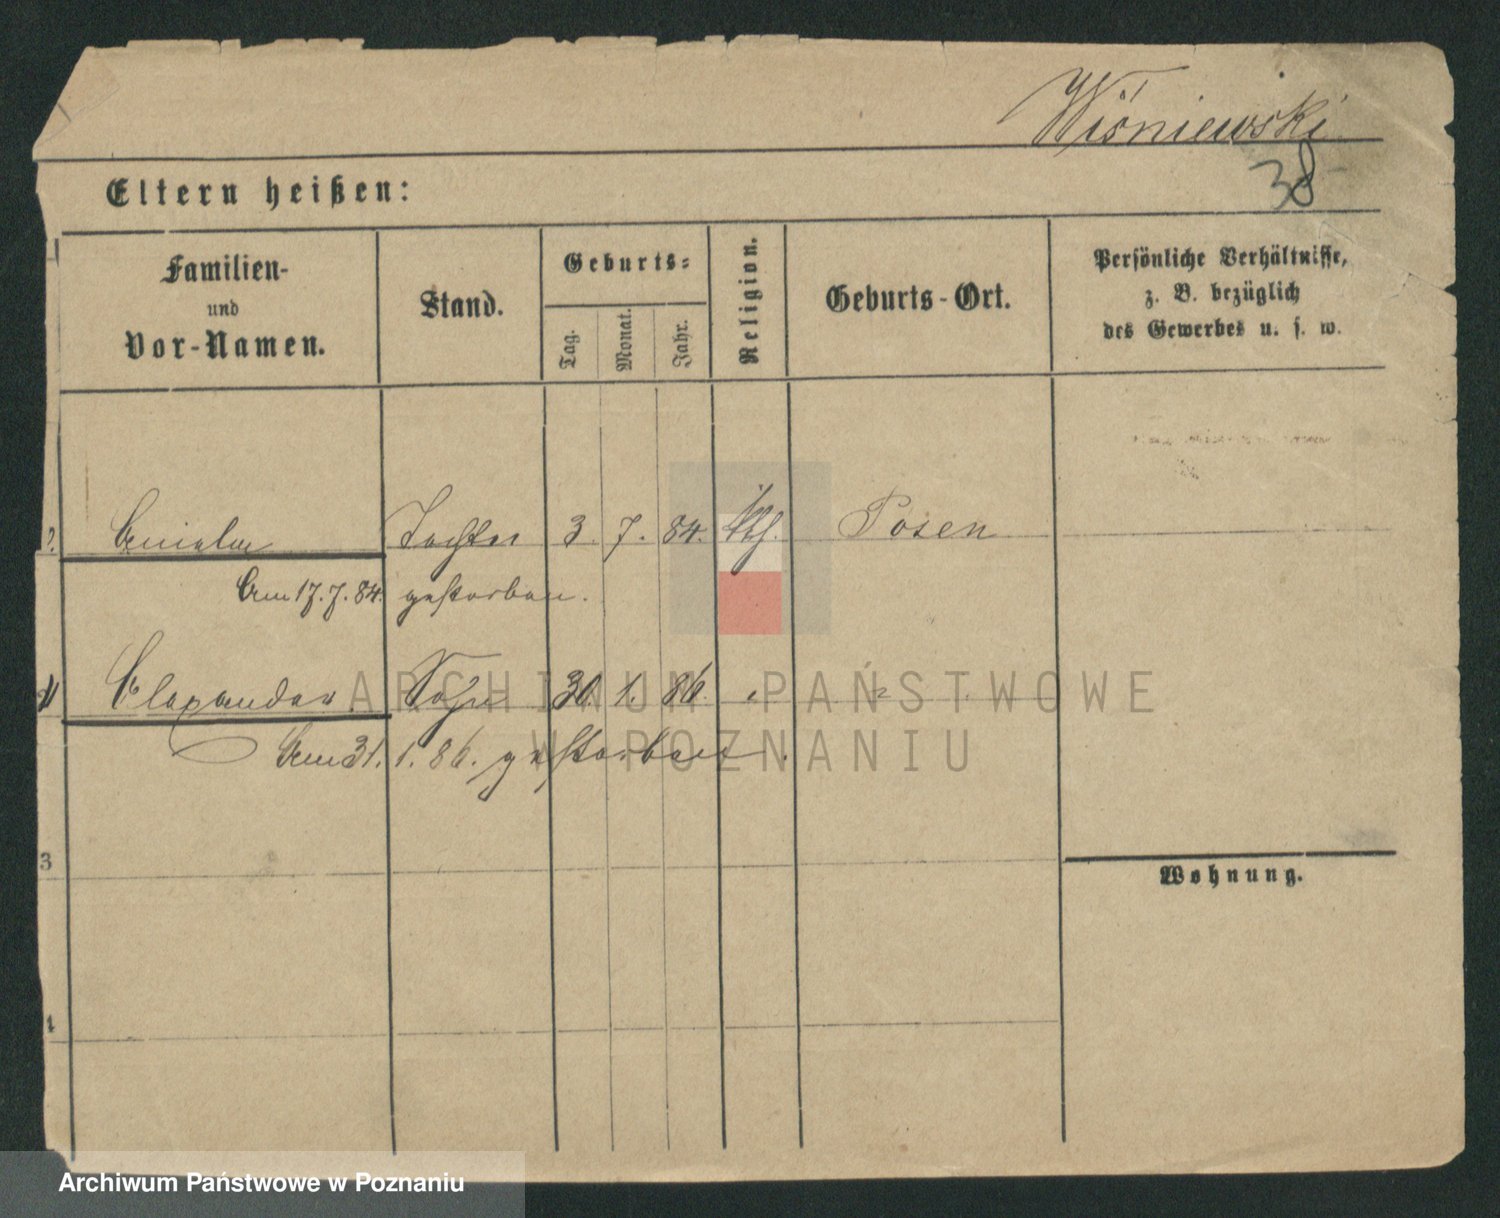 Wiśniewski
38
Eltern heißen:
Familien-
und
Vor-Namen.
Stand.
Geburts-
Tag.
Monat.
Jahr.
Religion.
Geburts-Ort.
Persönliche Verhältnisse,
z. B. bezüglich
des Gewerbes u. s. w.
Aniela Tochter 3. 7. 84. kth. Posen
Am 17.7.84. gestorben.
Alexander Sohn 30. 1. 86. " "
Am 31. 1. 86. gestorben.
3
Wohnung.
4
ARCHIWUM PAŃSTWOWE
W POZNANIU
Archiwum Państwowe w Poznaniu